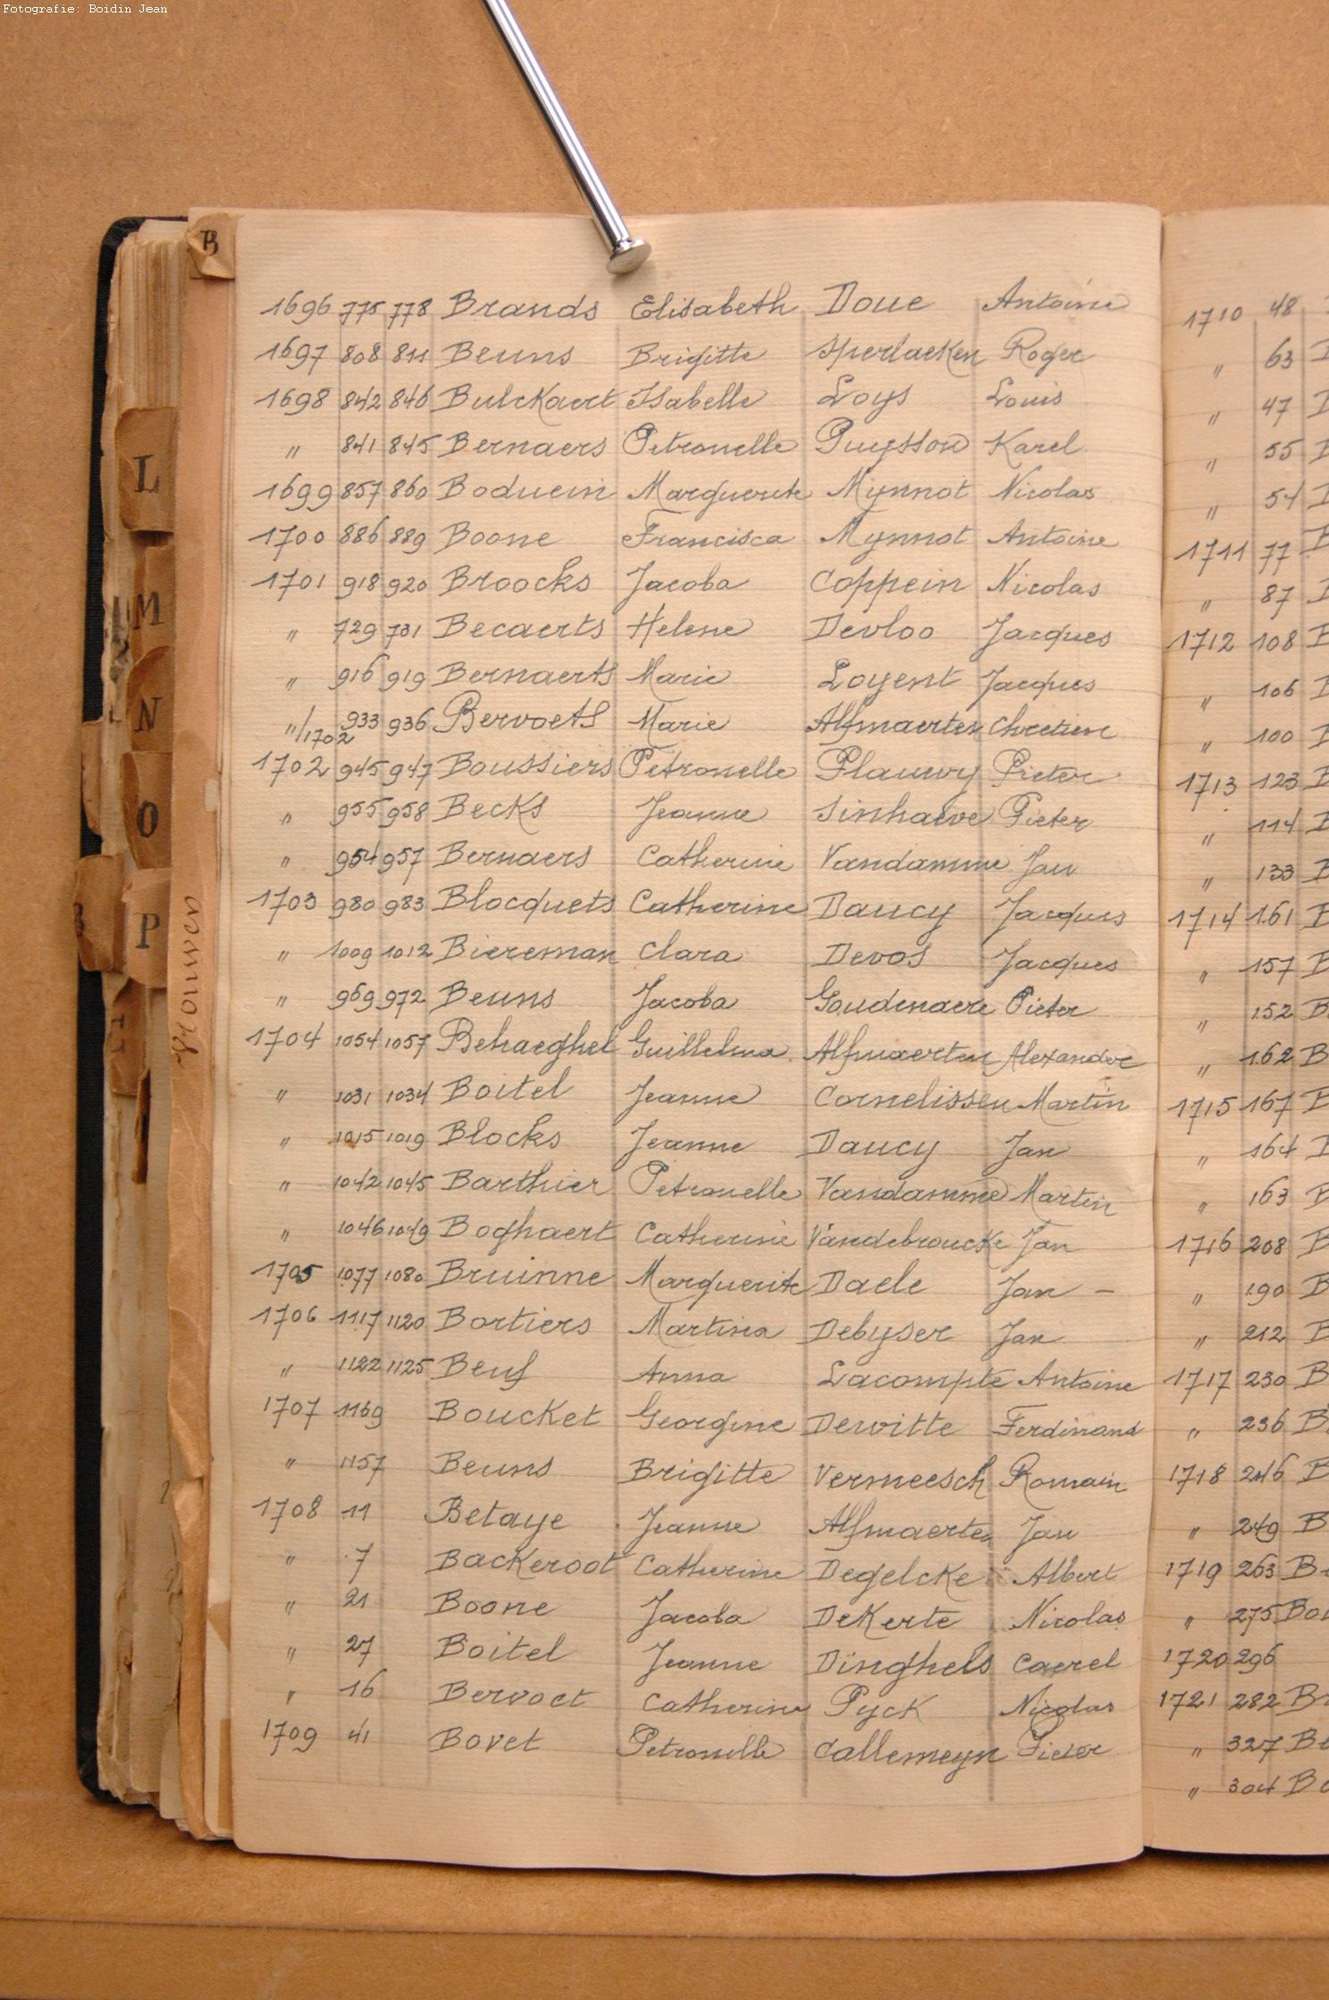 Fotografie: Boidin Jean
B
1696 775 778 Brands Elisabeth Doue Antoine
1697 808 811 Beuns Brigitte Sperlaeken Roger
1698 842 846 Bulckaert Isabelle Loys Louis
" 841 845 Bernaers Petronelle Puysson Karel
1699 857 860 Boduein Marguerite Mynnot Nicolas
1700 886 889 Boone Francisca Mynnot Antoine
1701 918 920 Broocks Jacoba Coppein Nicolas
" 729 731 Becaerts Helene Devloo Jacques
" 916 919 Bernaerts Marie Loyent Jacques
"/1702 933 936 Bervoets Marie Alfmaerten Chretien
1702 945 947 Boussiers Petronelle Plauwy Pieter
" 955 958 Becks Jeanne Sinhaeve Pieter
" 954 957 Bernaers Catherine Vandamme Jan
1703 980 983 Blocquets Catherine Daucy Jacques
" 1009 1012 Biereman Clara Devos Jacques
" 969 972 Beuns Jacoba Goudenaere Pieter
1704 1054 1057 Behaeghel Guillelma Alfmaerten Alexander
" 1031 1034 Boitel Jeanne Cornelissen Martin
" 1015 1019 Blocks Jeanne Daucy Jan
" 1042 1045 Barthier Petronelle Vandamme Martin
" 1046 1049 Boghaert Catherine Vandebroucke Jan
1705 1077 1080 Bruinne Marguerite Daele Jan –
1706 1117 1120 Bortiers Martina Debyser Jan
" 1122 1125 Beuf Anna Lacompte Antoine
1707 1169 Boucket Georgine Dewitte Ferdinand
" 1157 Beuns Brigitte Vermeesch Romain
1708 11 Betaye Jeanne Alfmaerten Jan
" 7 Backeroot Catherine Degelcke Albert
" 21 Boone Jacoba DeKerte Nicolas
" 27 Boitel Jeanne Dinghels Caerel
" 16 Bervoet Catherine Pyck Nicolas
1709 41 Bovet Petronelle Callemeyn Pieter
L
M
N
O
P
Vrouwen
1710 48
" 63
" 47
" 55
" 54
1711 77 B
" 87
1712 108 B
" 106
" 100
1713 123 B
" 114 B
" 133 B
1714 161 B
" 157 B
" 152 B
" 162 B
1715 167 B
" 164
" 163 B
1716 208 B
" 190 B
" 212 B
1717 230 B
" 236 B
1718 246 B
" 249 B
1719 263 B
" 275 Bo
1720 296
1721 282 B
" 327 B
" 304 B